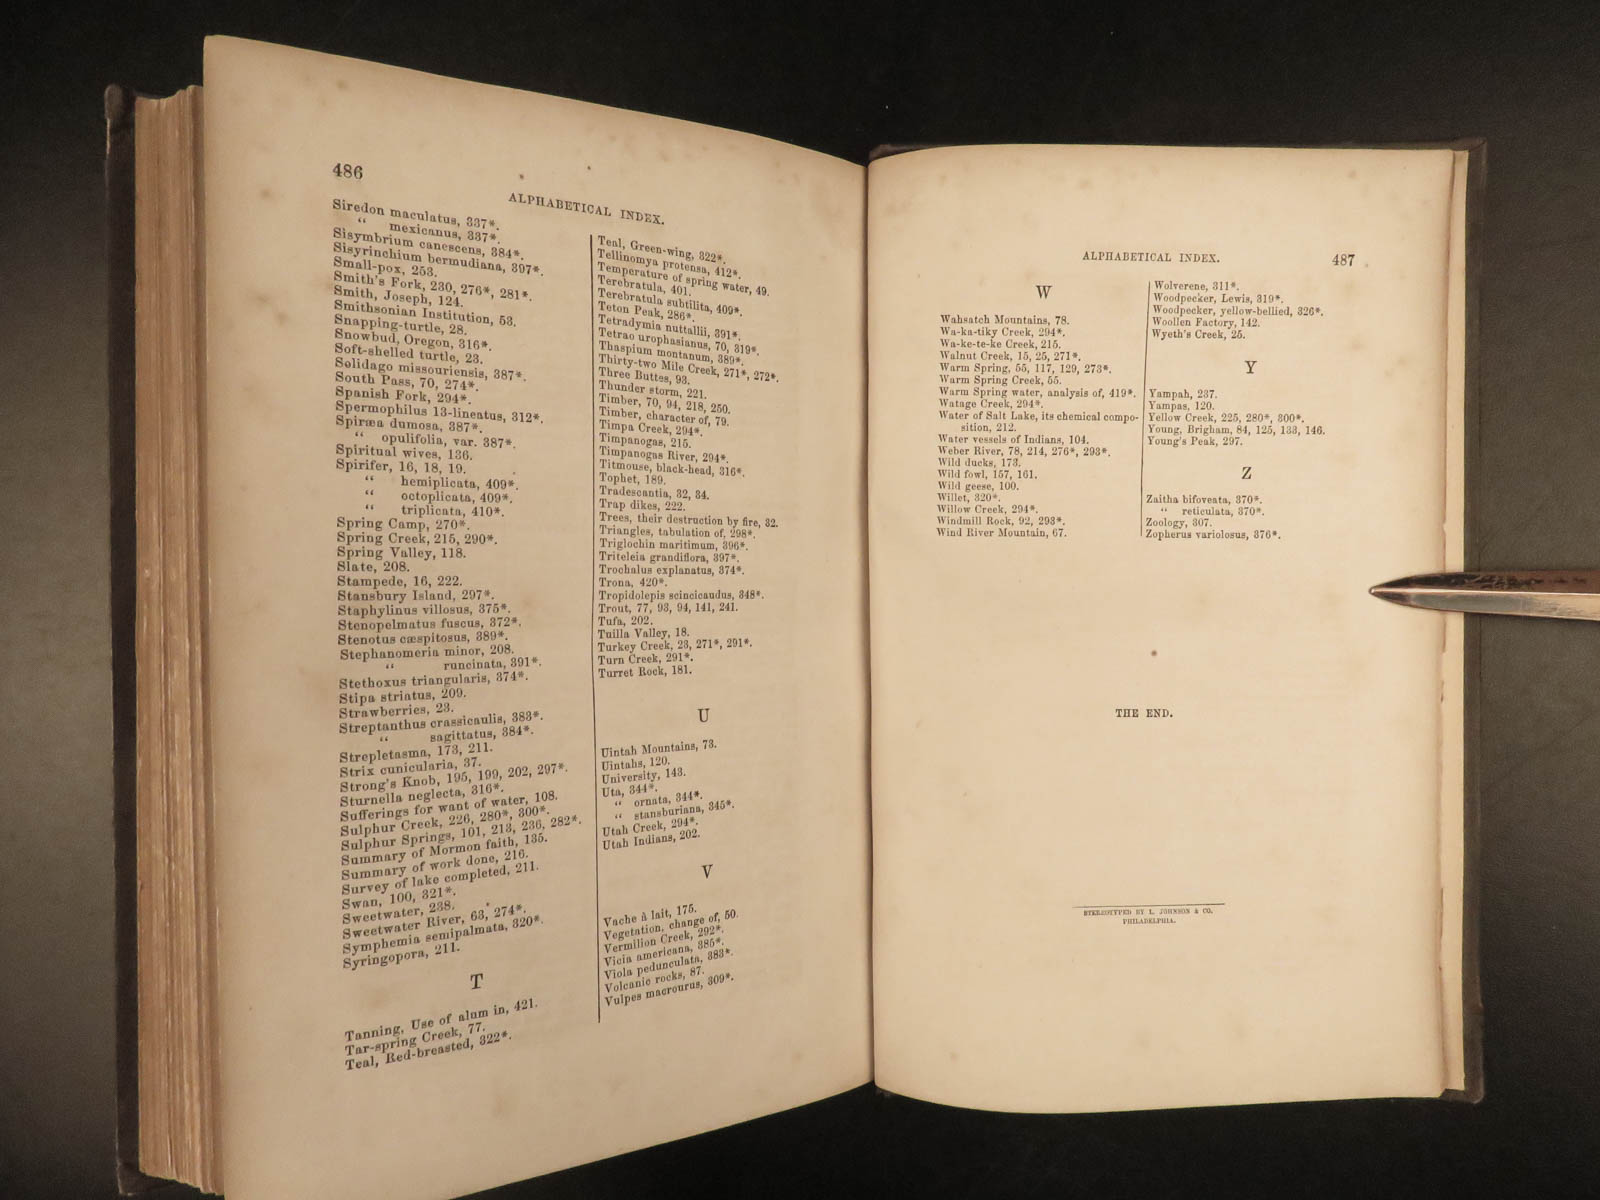 486
ALPHABETICAL INDEX.
Siredon maculatus, 337*.
“ mexicanus, 337*.
Sisymbrium canescens, 384*.
Sisyrinchium bermudiana, 397*.
Small-pox, 253.
Smith's Fork, 230, 276*, 281*.
Smith, Joseph, 124.
Smithsonian Institution, 53.
Snapping-turtle, 28.
Snowbud, Oregon, 316*.
Soft-shelled turtle, 23.
Solidago missouriensis, 387*.
South Pass, 70, 274*.
Spanish Fork, 294*.
Spermophilus 13-lineatus, 312*.
Spiræa dumosa, 387*.
“ opulifolia, var. 387*.
Spiritual wives, 136.
Spirifer, 16, 18, 19.
“ hemiplicata, 409*.
“ octoplicata, 409*.
“ triplicata, 410*.
Spring Camp, 270*.
Spring Creek, 215, 290*.
Spring Valley, 118.
Slate, 208.
Stampede, 16, 222.
Stansbury Island, 297*.
Staphylinus villosus, 375*.
Stenopelmatus fuscus, 372*.
Stenotus cæspitosus, 389*.
Stephanomeria minor, 208.
“ runcinata, 391*.
Stethoxus triangularis, 374*.
Stipa striatus, 209.
Strawberries, 23.
Streptanthus crassicaulis, 383*.
“ sagittatus, 384*.
Strepletasma, 173, 211.
Strix cunicularia, 37.
Strong's Knob, 195, 199, 202, 297*.
Sturnella neglecta, 316*.
Sufferings for want of water, 108.
Sulphur Creek, 226, 280*, 300*.
Sulphur Springs, 101, 213, 236, 282*.
Summary of Mormon faith, 135.
Summary of work done, 216.
Survey of lake completed, 211.
Swan, 100, 321*.
Sweetwater, 238.
Sweetwater River, 63, 274*.
Symphemia semipalmata, 320*.
Syringopora, 211.
T
Tanning, Use of alum in, 421.
Tar-spring Creek, 77.
Teal, Red-breasted, 322*.
Teal, Green-wing, 322*.
Tellinomya protensa, 412*.
Temperature of spring water, 49.
Terebratula, 401.
Terebratula subtilita, 409*.
Teton Peak, 286*.
Tetradymia nuttallii, 391*.
Tetrao urophasianus, 70, 319*.
Thaspium montanum, 389*.
Thirty-two Mile Creek, 271*, 272*.
Three Buttes, 93.
Thunder storm, 221.
Timber, 70, 94, 218, 250.
Timber, character of, 79.
Timpa Creek, 294*.
Timpanogas, 215.
Timpanogas River, 294*.
Titmouse, black-head, 316*.
Tophet, 189.
Tradescantia, 32, 34.
Trap dikes, 222.
Trees, their destruction by fire, 32.
Triangles, tabulation of, 298*.
Triglochin maritimum, 396*.
Triteleia grandiflora, 397*.
Trochalus explanatus, 374*.
Trona, 420*.
Tropidolepis scincicaudus, 348*.
Trout, 77, 93, 94, 141, 241.
Tufa, 202.
Tuilla Valley, 18.
Turkey Creek, 23, 271*, 291*.
Turn Creek, 291*.
Turret Rock, 181.
U
Uintah Mountains, 73.
Uintahs, 120.
University, 143.
Uta, 344*.
“ ornata, 344*.
“ stansburiana, 345*.
Utah Creek, 294*.
Utah Indians, 202.
V
Vache à lait, 175.
Vegetation, change of, 50.
Vermilion Creek, 292*.
Vicia americana, 385*.
Viola pedunculata, 383*.
Volcanic rocks, 87.
Vulpes macrourus, 309*.
ALPHABETICAL INDEX.
487
W
Wahsatch Mountains, 78.
Wa-ka-tiky Creek, 294*.
Wa-ke-te-ke Creek, 215.
Walnut Creek, 15, 25, 271*.
Warm Spring, 55, 117, 129, 273*.
Warm Spring Creek, 55.
Warm Spring water, analysis of, 419*.
Watage Creek, 294*.
Water of Salt Lake, its chemical compo-
sition, 212.
Water vessels of Indians, 104.
Weber River, 78, 214, 276*, 293*.
Wild ducks, 173.
Wild fowl, 157, 161.
Wild geese, 100.
Willet, 320*.
Willow Creek, 294*.
Windmill Rock, 92, 293*.
Wind River Mountain, 67.
Wolverene, 311*.
Woodpecker, Lewis, 319*.
Woodpecker, yellow-bellied, 326*.
Woollen Factory, 142.
Wyeth's Creek, 25.
Y
Yampah, 237.
Yampas, 120.
Yellow Creek, 225, 280*, 300*.
Young, Brigham, 84, 125, 133, 146.
Young's Peak, 297.
Z
Zaitha bifoveata, 370*.
“ reticulata, 370*.
Zoology, 307.
Zopherus variolosus, 376*.
THE END.
STEREOTYPED BY L. JOHNSON & CO.
PHILADELPHIA.